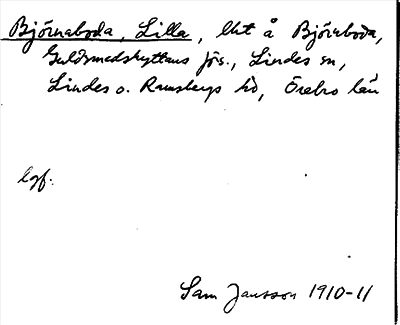 Björnaboda, Lilla, lht å Björnboda,
Guldsmedshyttans jfs., Lindes sn,
Lindes o. Ramsbergs hd, Örebro län
bgf.
Sam Jansson 1910-11